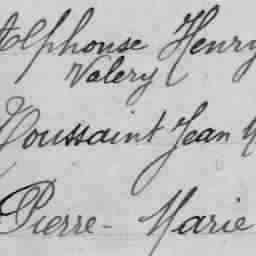 Alphonse Henry
Valery
Toussaint Jean
Pierre-Marie